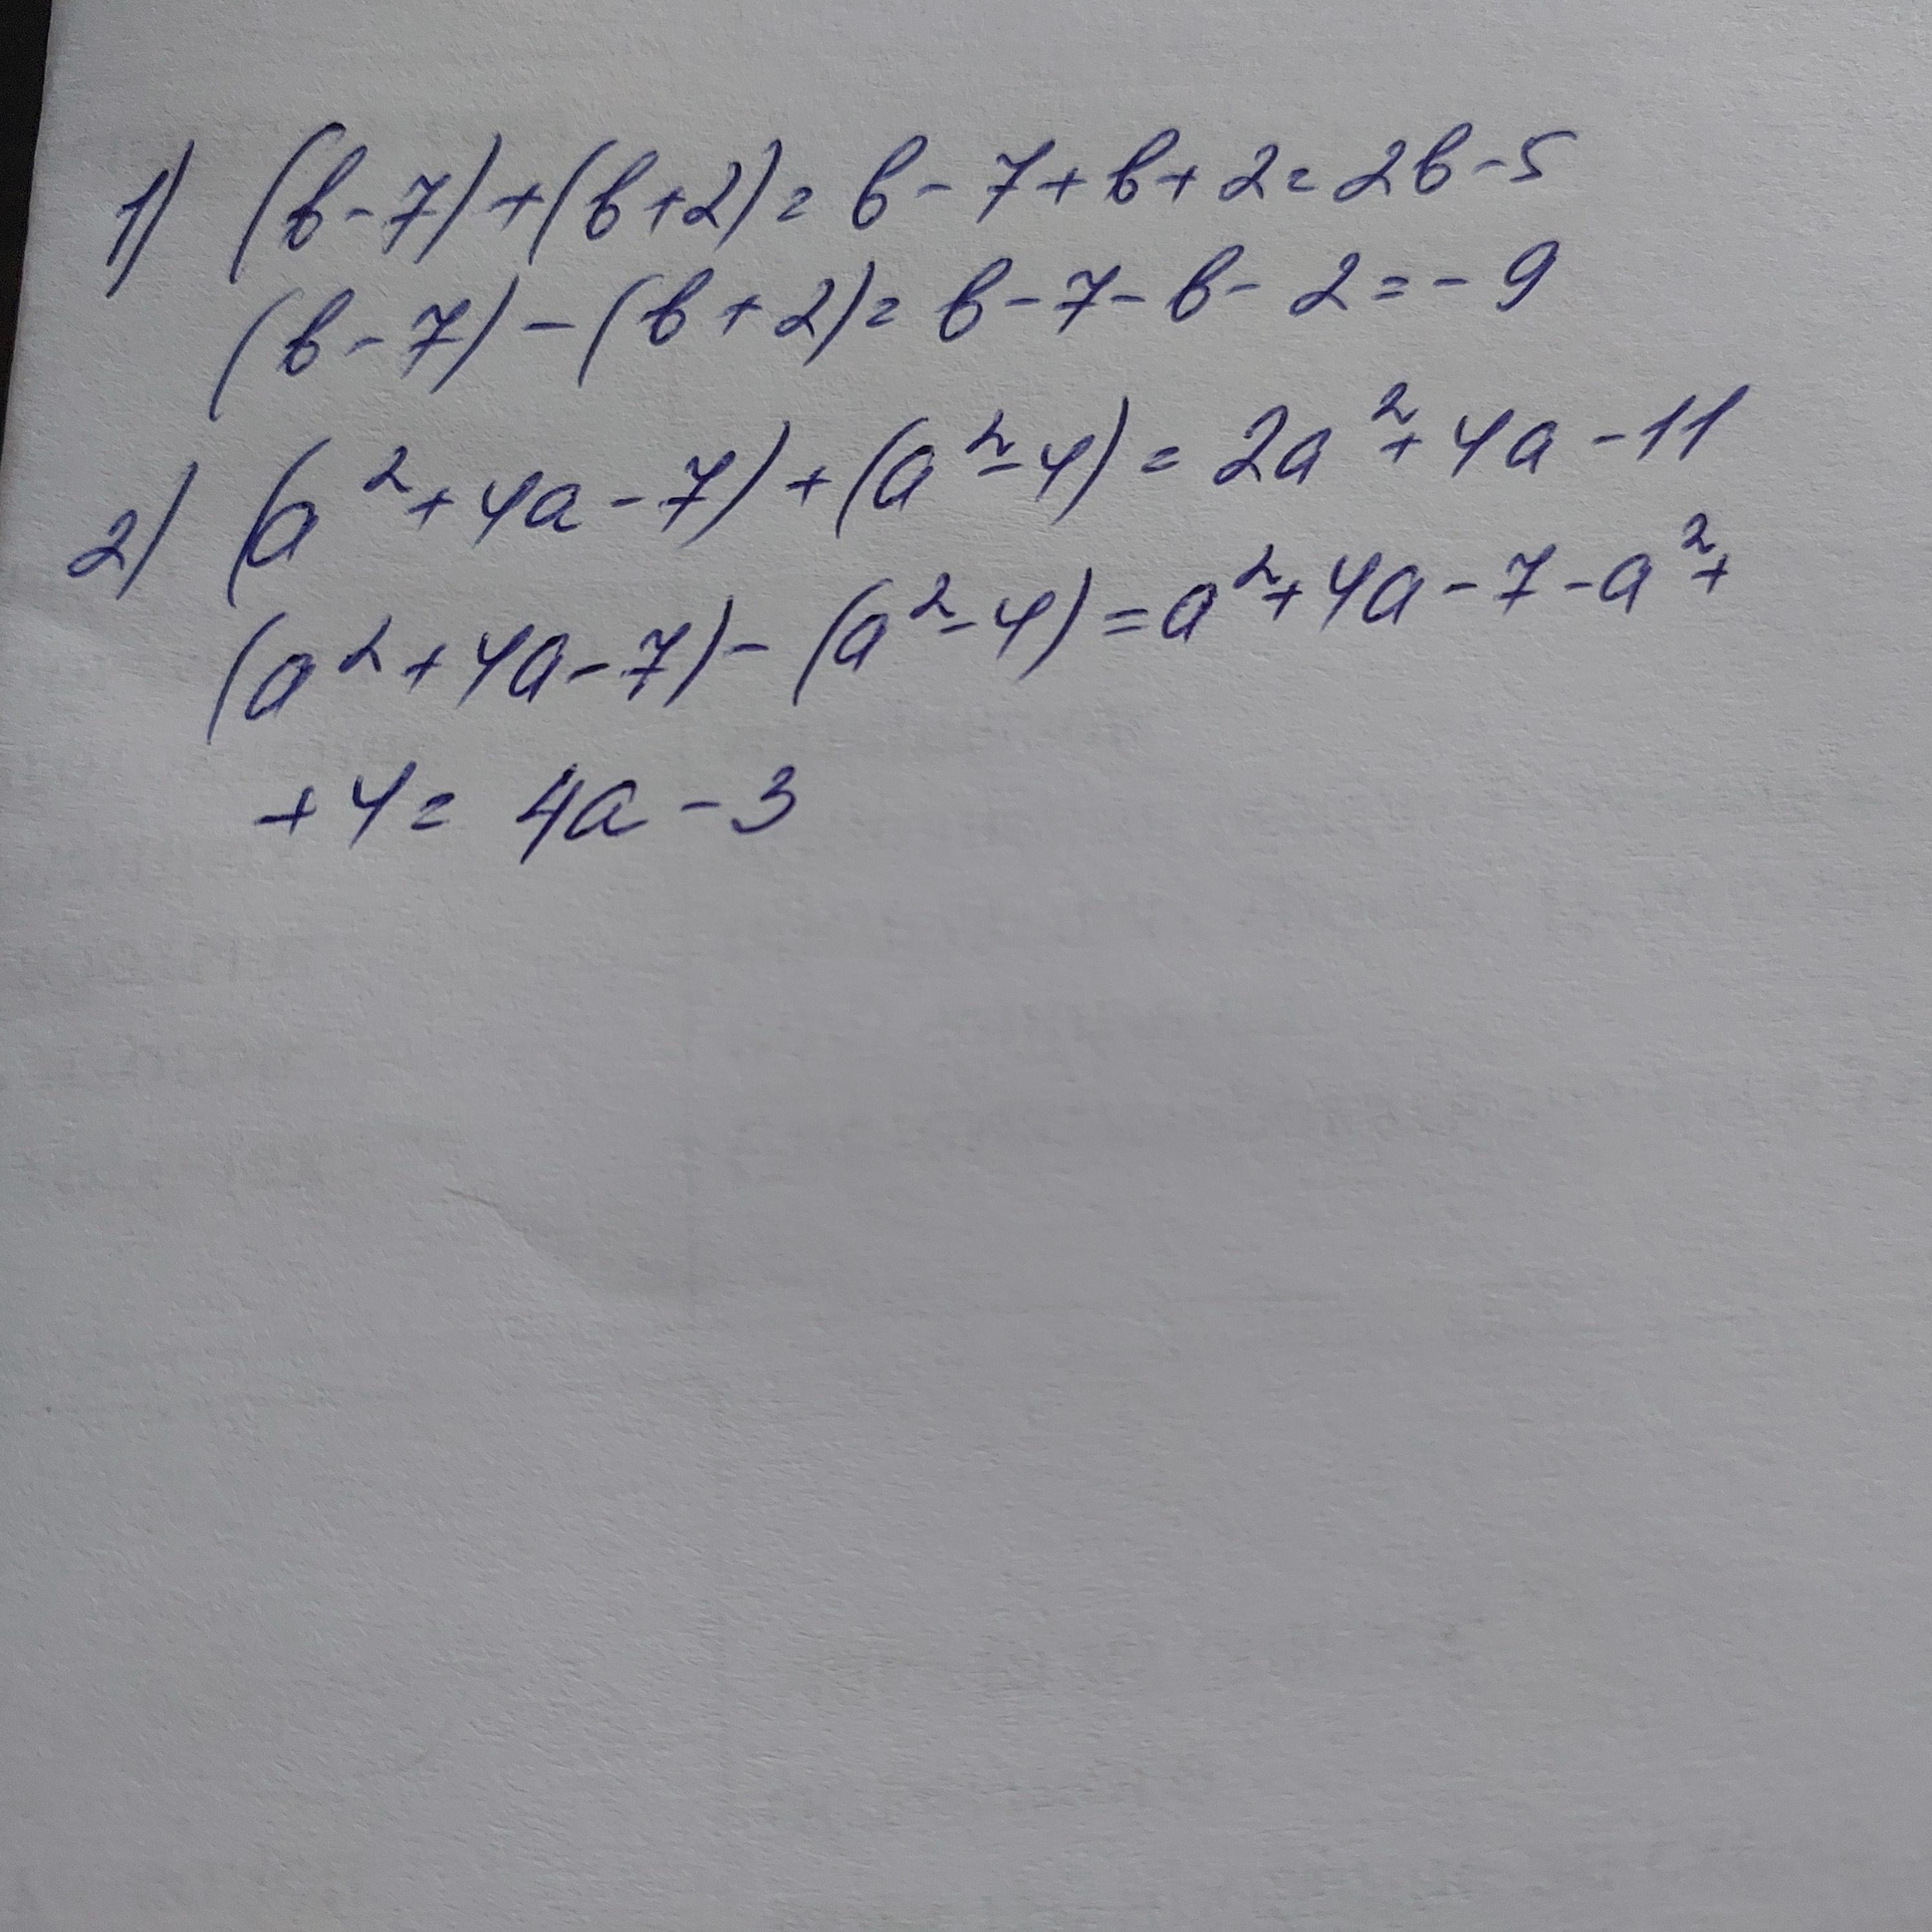 1) (b-7)+(b+2)=b-7+b+2=2b-5
(b-7)-(b+2)=b-7-b-2=-9
2) (a²+4a-7)+(a²-4)=2a²+4a-11
(a²+4a-7)-(a²-4)=a²+4a-7-a²+
+4=4a-3